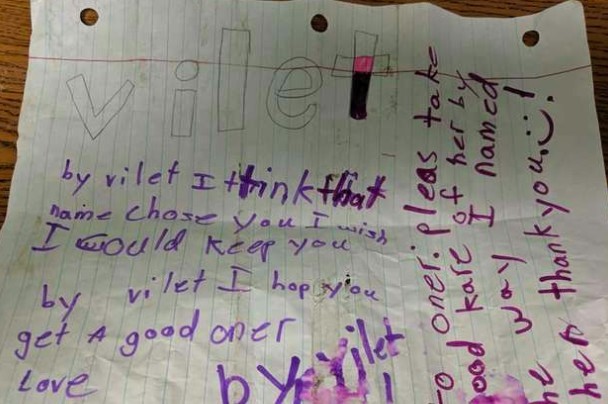 vilet
by vilet I think that
name chose you I wish
I would keep you
by vilet I hop you
get A good oner
Love
by vilet
oner: pleas take
kare of her by
way I named
her thankyou!